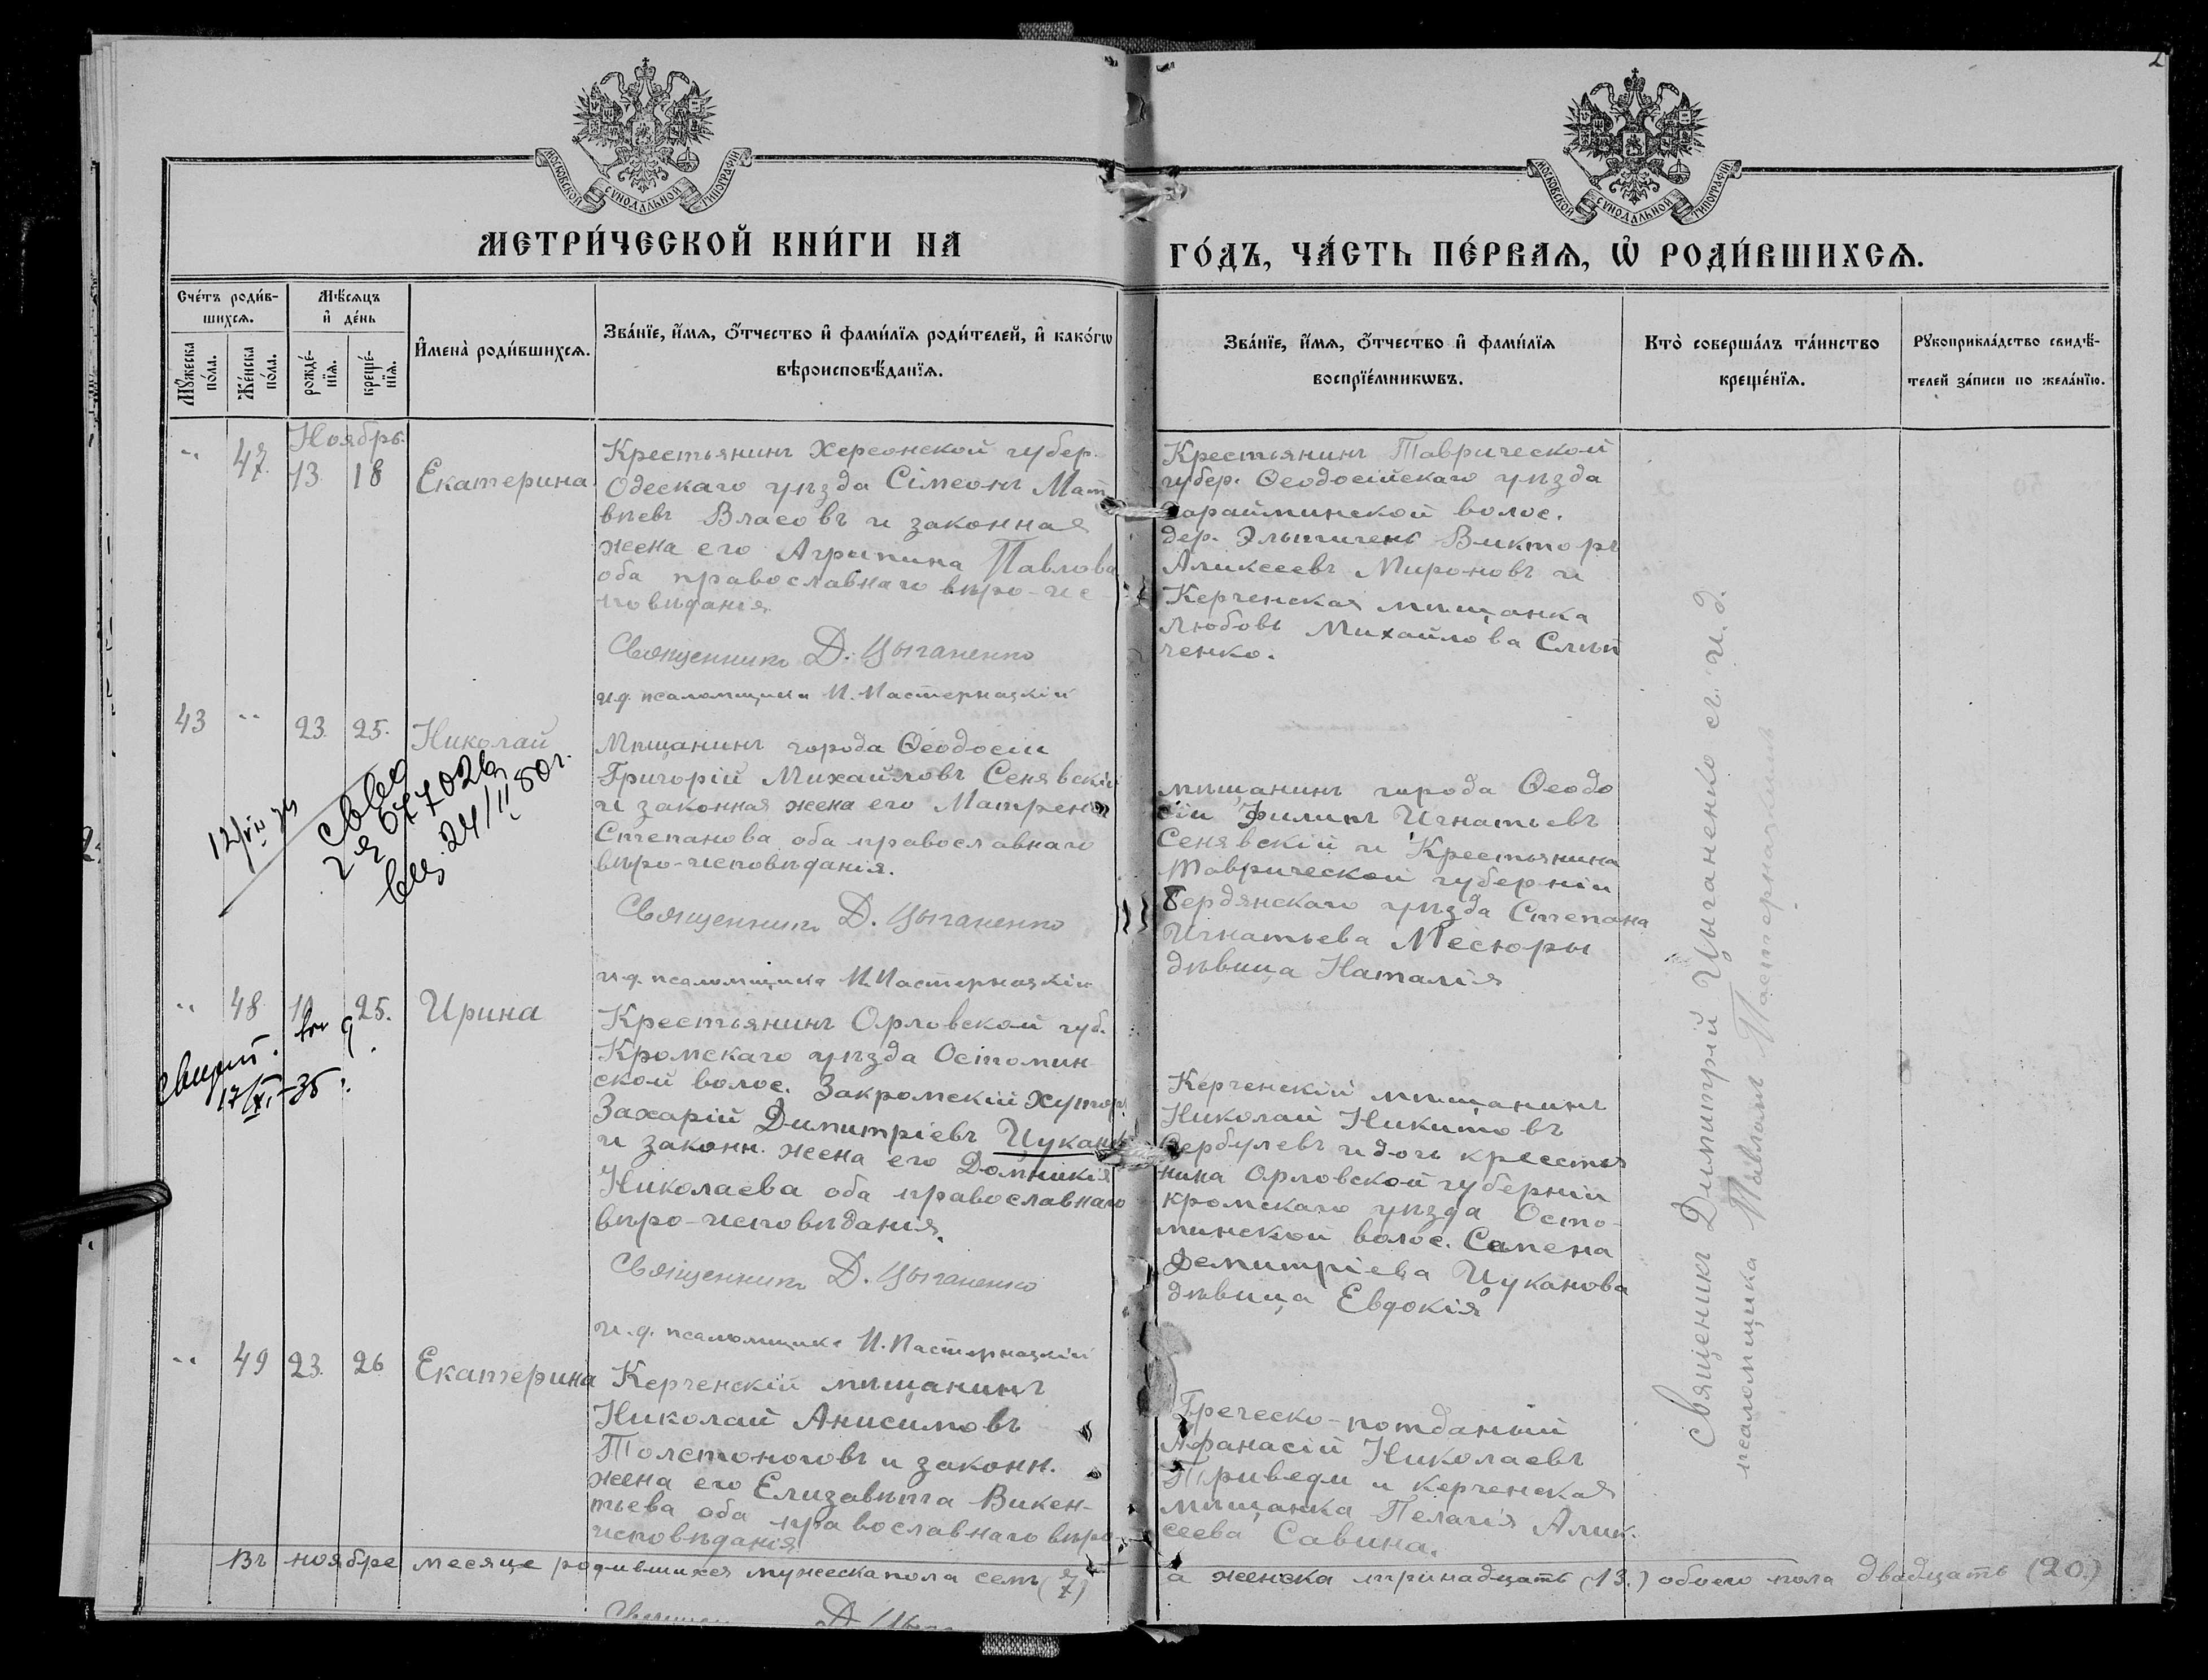 2
МОСКОВСКОЙ СѴНОДАЛЬНОЙ ТИПОГРАФІИ
МОСКОВСКОЙ СѴНОДАЛЬНОЙ ТИПОГРАФІИ
МЕТРИ́ЧЕСКОЙ КНИ́ГИ НА
ГО́ДЪ, ЧА́СТЬ ПЕ́РВАѦ, Ѡ҆ РОДИ́ВШИХСѦ.
Сче́тъ роди́в-
шихсѧ.
Мꙋ́жеска
по́ла.
Же́нска
по́ла.
Мѣ́сѧцъ
и҆ де́нь
рожде́-
нїѧ.
креще́-
нїѧ.
И҆мена̀ роди́вшихсѧ.
Зва́нїе, и҆́мѧ, ѻ҆́тчество и҆ фами́лїѧ роди́телей, и҆ како́гѡ
вѣроисповѣ́данїѧ.
Зва́нїе, и҆́мѧ, ѻ҆́тчество и҆ фами́лїѧ
воспрїе́мникѡвъ.
Кто̀ соверша́лъ та́инство
креще́нїѧ.
Рꙋкоприкла́дство свидѣ́-
телей за́писи по жела́нїю.
Ноябрь.
" 47. 13 18 Екатерина
Крестьянинъ Херсонской губер.
Одескаго уѣзда Сімеонъ Мат
вѣевъ Власовъ и законная
жена его Агрипина Павлова
оба православнаго вѣро-ис
повѣданія
Священникъ Д. Цыганенко
и.д. псаломщика П. Пастернацкій
Крестьянинъ Таврической
губер. Ѳеодосійскаго уѣзда
Сарайминской волос.
дер. Эльтигенъ Викторъ
Аликсеевъ Мироновъ и
Керченская мѣщанка
Любовь Михайлова Слѣп
ченко.
43 " 23. 25. Николай
24/II 80г.
Мѣщанинъ города Ѳеодосіи
Григорій Михайловъ Сенявскій
и законная жена его Матрена
Степанова оба православнаго
вѣро-исповѣданія.
Священникъ Д. Цыганенко
и.д. псаломщика П. Пастернацкій
мѣщанинъ города Ѳеодо
сіи Филипъ Игнатьевъ
Сенявскій и Крестьянина
Таврической губерніи
Бердянскаго уѣзда Степана
Игнатьева Месюры
дѣвица Наталія
" 48 19 25. Ирина
17/XI-35 г.
Крестьянинъ Орловской губ.
Кромскаго уѣзда Остомин
ской волос. Закромскій Хутор.
Захарій Димитріевъ Цукановъ
и законн. жена его Домникія
Николаева оба православнаго
вѣро-исповѣданія.
Священникъ Д. Цыганенко
и.д. псаломщика П. Пастернацкій
Керченскій мѣщанинъ
Николай Никитовъ
Вербулевъ и дочь крестья
нина Орловской губерніи
Кромскаго уѣзда Осто-
минской волос. Семена
Демитріева Цуканова
дѣвица Евдокія
" 49 23. 26 Екатерина
Керченскій мѣщанинъ
Николай Анисимовъ
Толстоноговъ и законн.
жена его Елизавѣта Викен-
тьева оба православнаго вѣро-
исповѣданія
Греческо-потданый
Афанасій Николаевъ
Триведи и керченская
мѣщанка Пелагія Алик-
сеева Савина.
Священникъ Димитрій Цыганенко съ и. д.
псаломщика Павломъ Пастернацкимъ
Въ ноябре месяце родившихся мужеска пола семь (7)
а женска тринадцать (13.) обоего пола двадцать (20.)